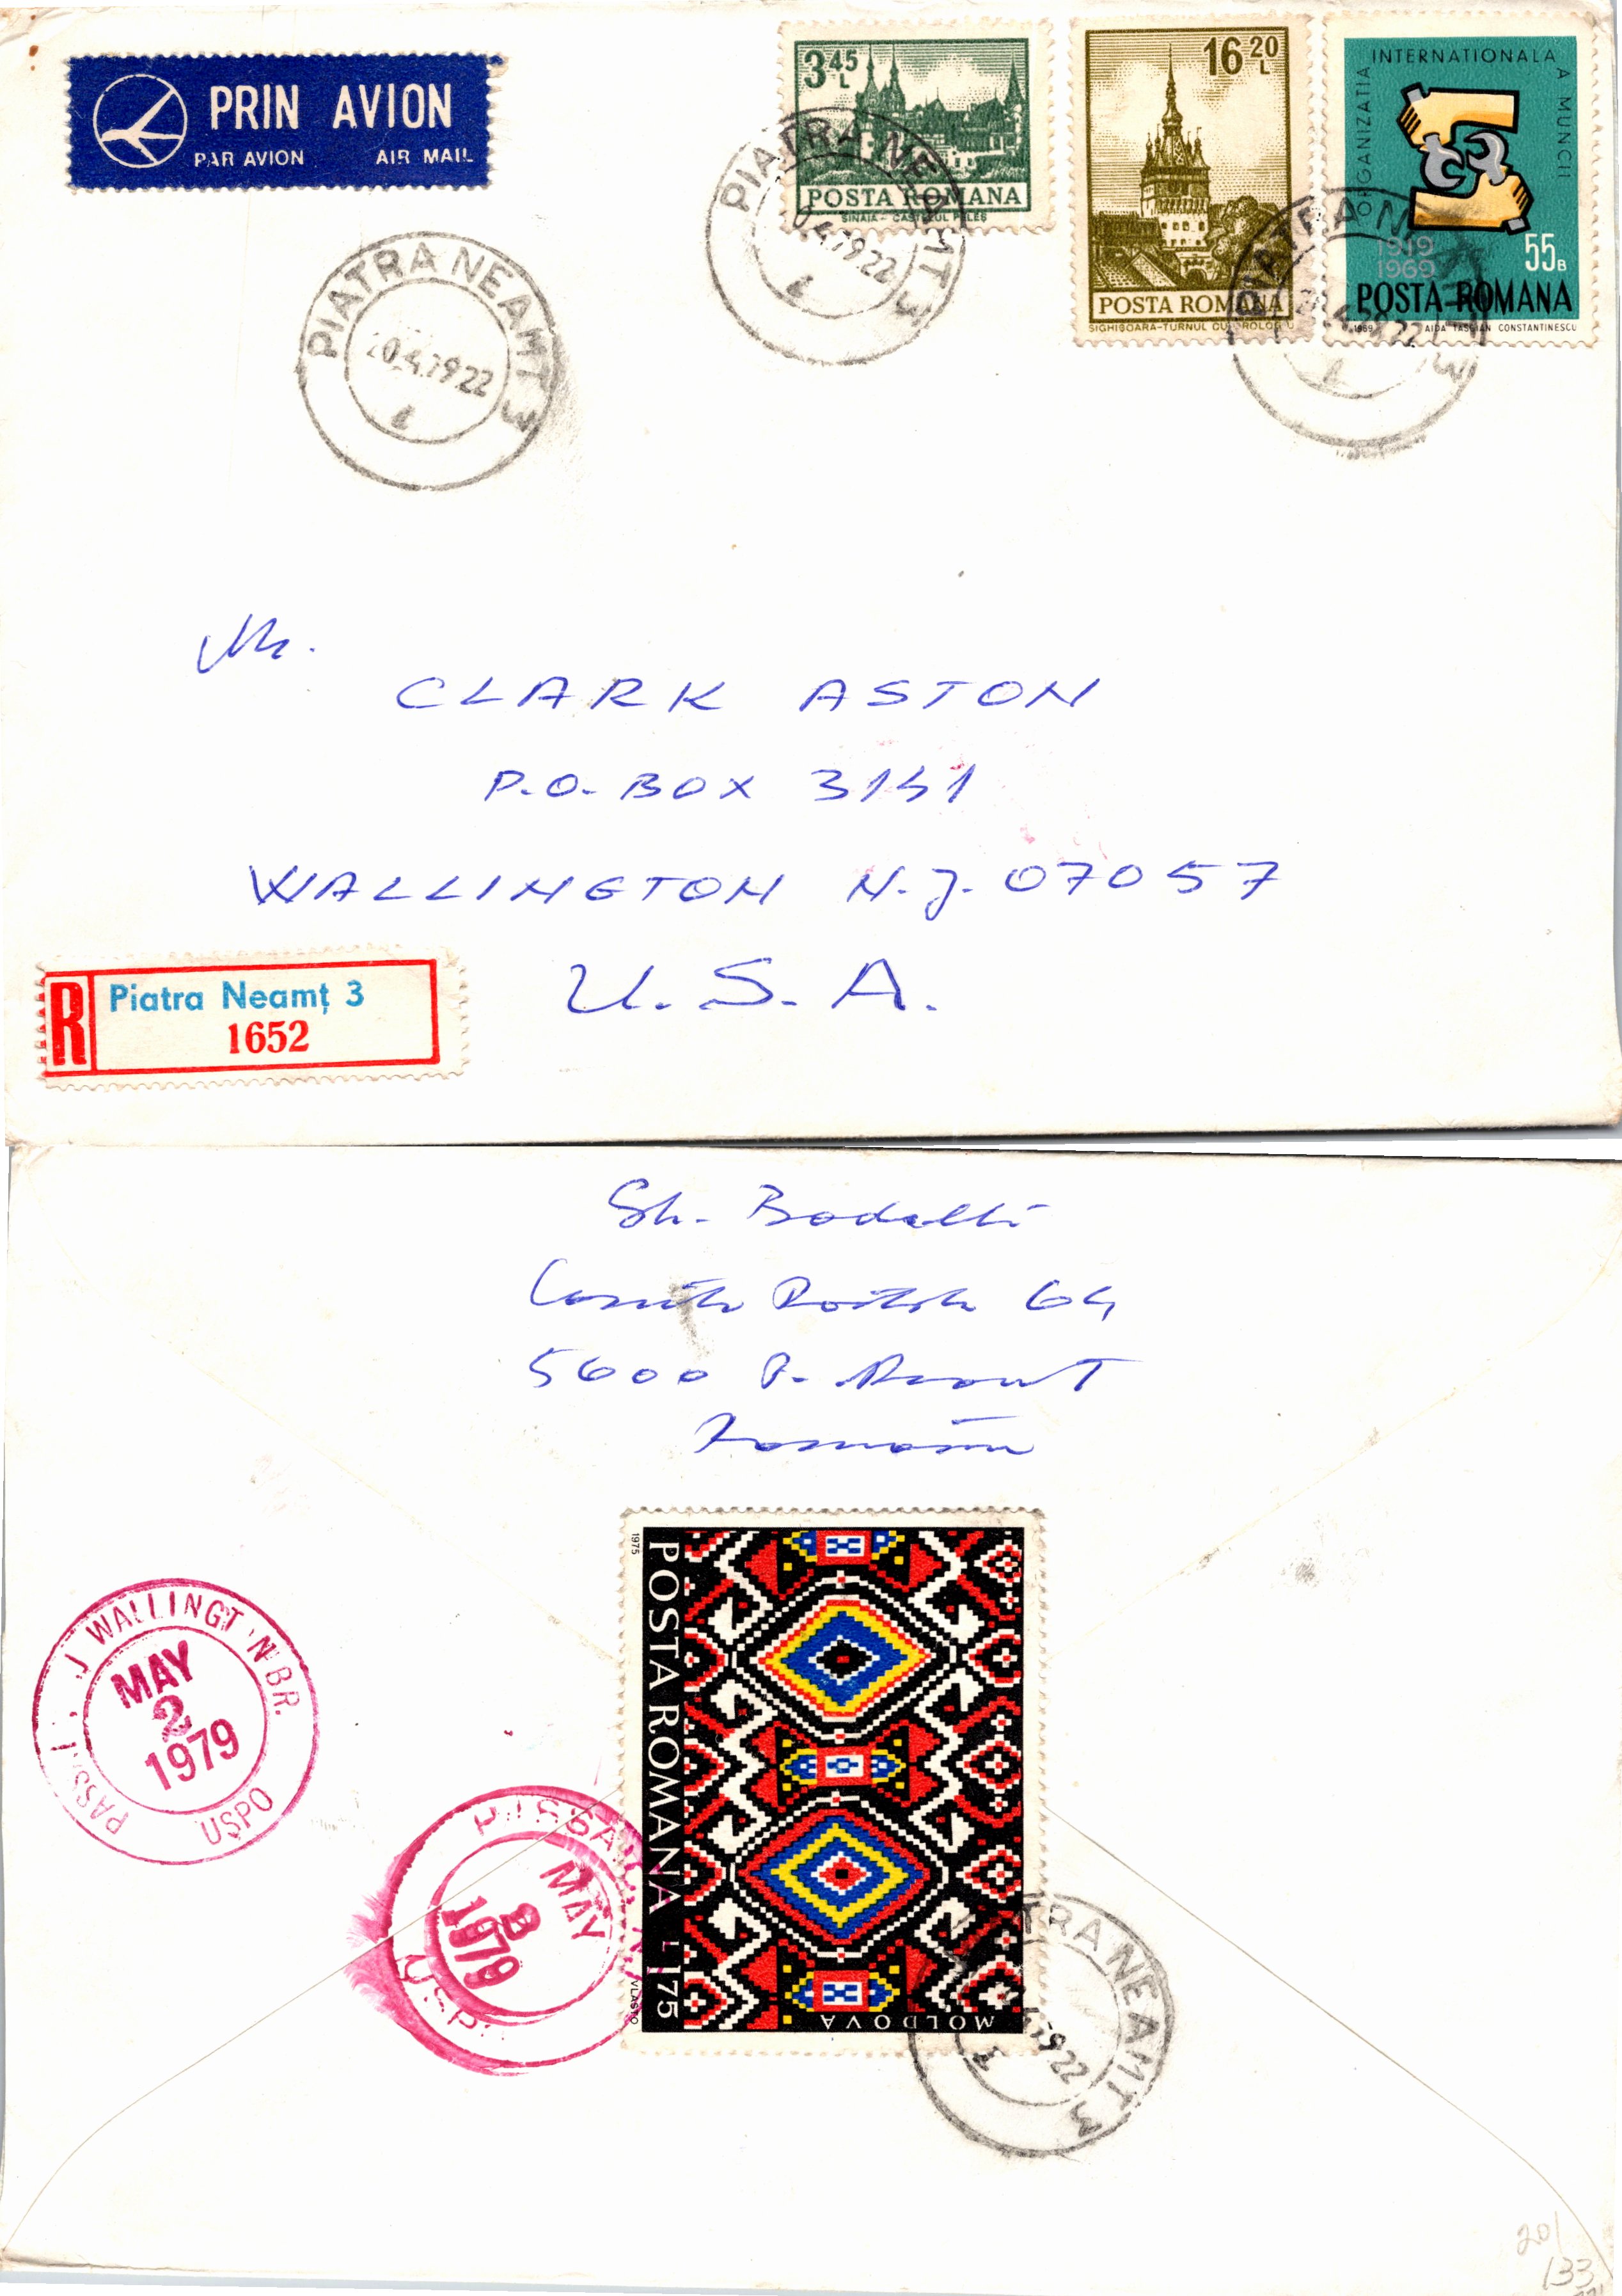 PRIN AVION
PAR AVION AIR MAIL
3 45 L
POSTA ROMANA
SINAIA - CASTELUL PELEȘ
16 20 L
POSTA ROMANA
SIGHIȘOARA-TURNUL CU OROLOGIU
ORGANIZATIA INTERNATIONALA A MUNCII
1919
1969
55B
POSTA ROMANA
1969 AIDA TASGIAN CONSTANTINESCU
PIATRA NEAMT 3
20.4.79 22
PIATRA NEAMT 3
0.4.79 22
PIATRA NEAMT 3
Mr.
CLARK ASTON
P.O. BOX 3141
WALLINGTON N.J. 07057
U.S.A.
R Piatra Neamț 3
1652
64
5600 P. Neamt
Romania
1975
POSTA ROMANA L 1 75
VLASTO
MOLDOVA
WALLINGT N BR.
MAY
2
1979
PASS
USPO
PASSA
MAY
2
1979
TRA NEAMT 3
4.79 22
20/
133